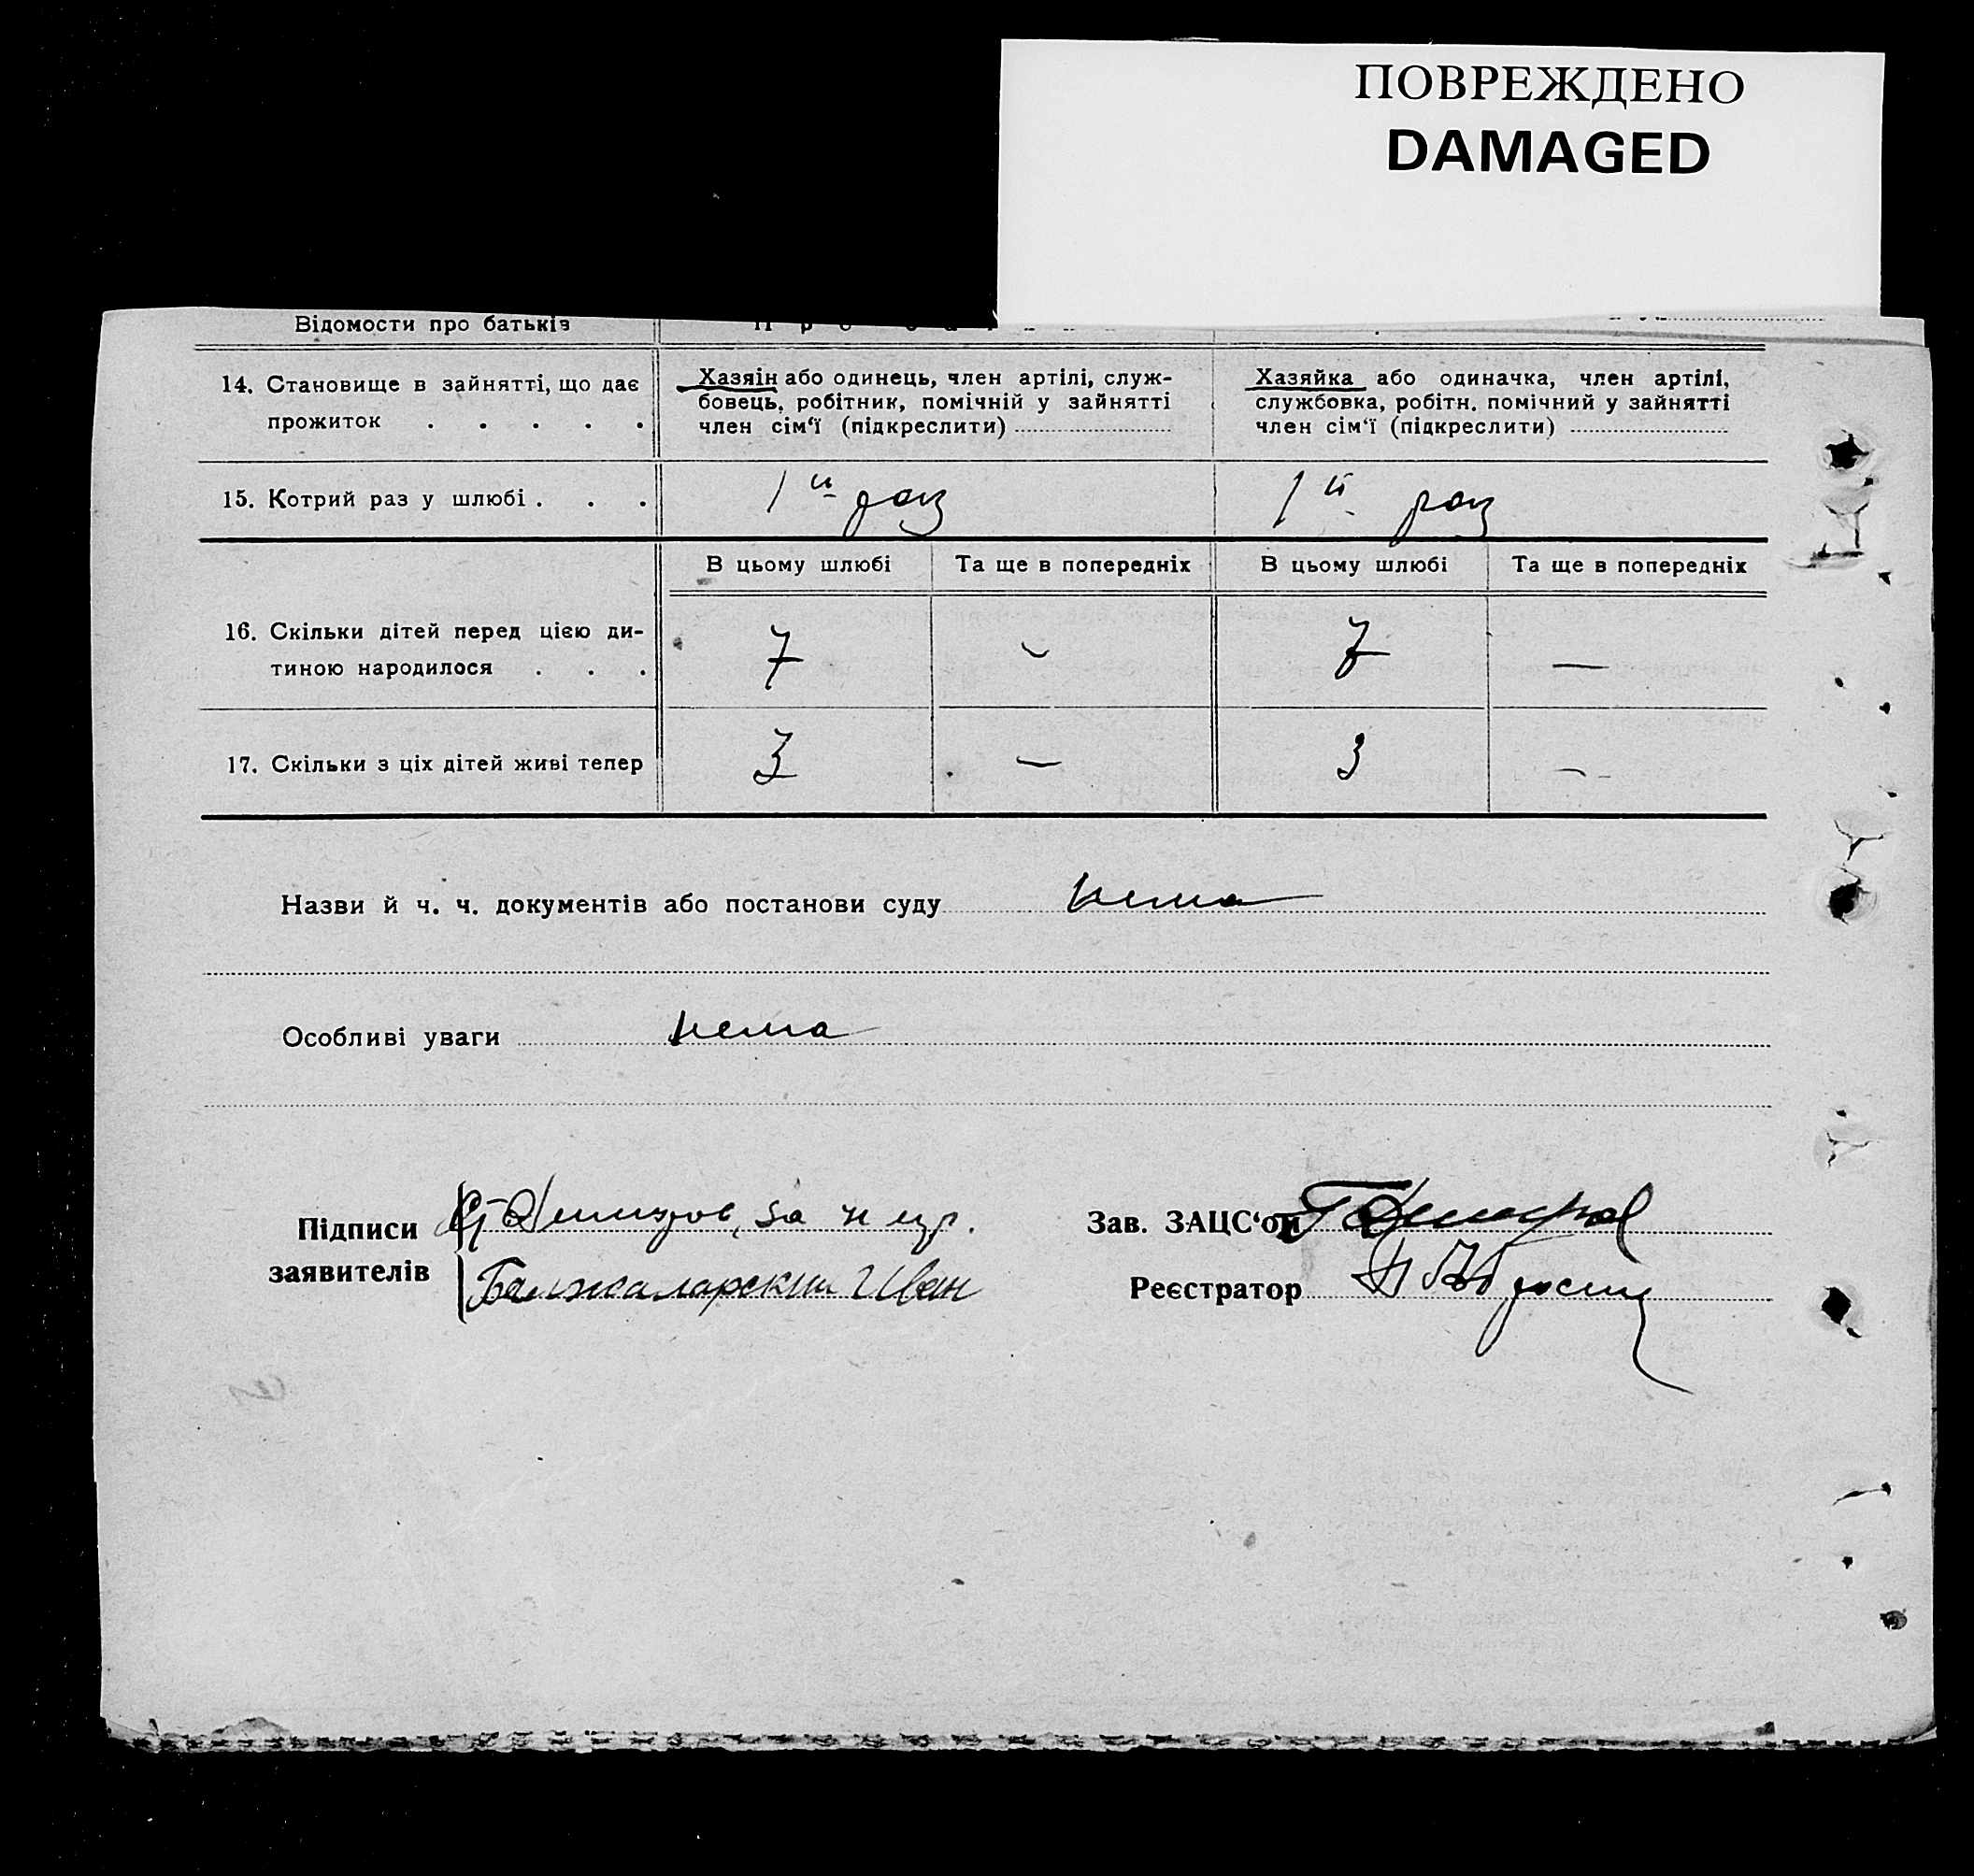 ПОВРЕЖДЕНО
DAMAGED
Відомости про батьків
14. Становище в зайнятті, що дає прожиток . . . . .
Хазяїн або одинець, член артілі, служ-
бовець, робітник, помічній у зайнятті
член сім'ї (підкреслити)
Хазяйка або одиначка, член артілі,
службовка, робітн. помічний у зайнятті
член сім'ї (підкреслити)
15. Котрий раз у шлюбі . . . 1й раз 1й раз
В цьому шлюбі Та ще в попередніх В цьому шлюбі Та ще в попередніх
16. Скільки дітей перед цією ди-
тиною народилося . . . 7 - 7 —
17. Скільки з ціх дітей живі тепер 3 — 3 —
Назви й ч. ч. документів або постанови суду нема
Особливі уваги нема
Підписи
заявителів
за нецр.
Иван
Зав. ЗАЦС'ом
Реєстратор